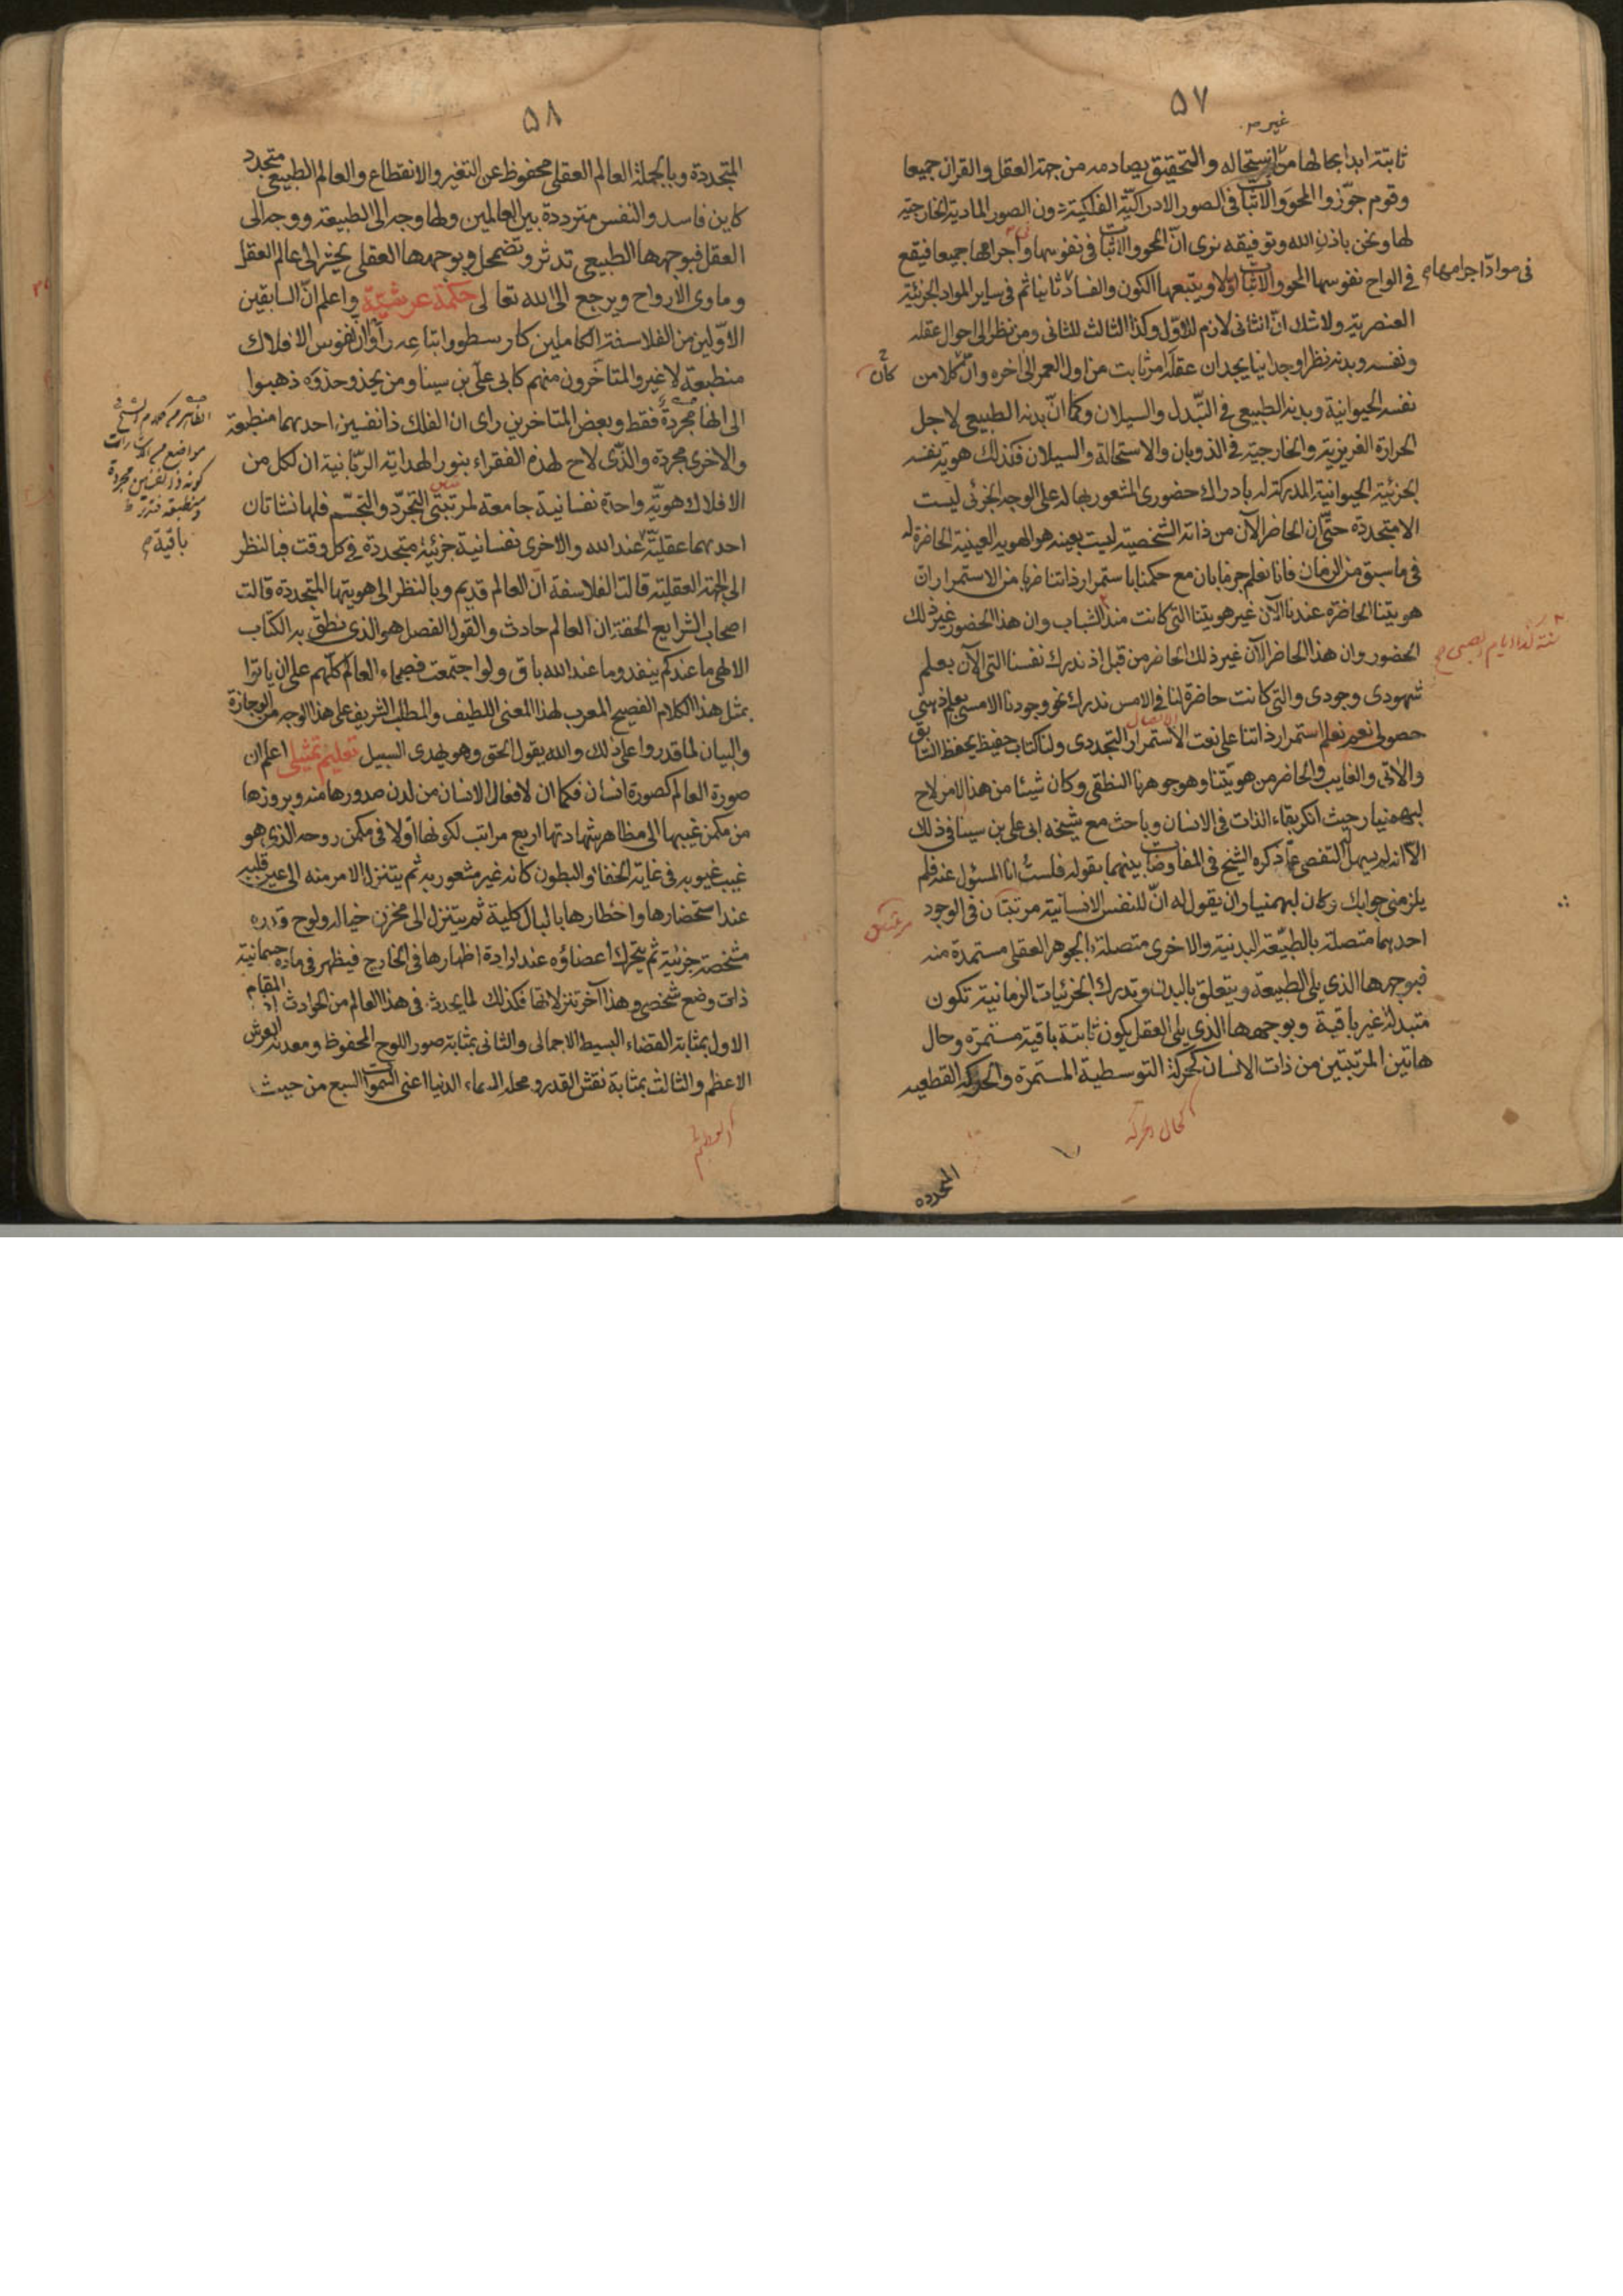 ٥٧
غير
ثابتة ابدا بحالها من استحاله والتحقيق يصادمه من جهة العقل والقران جميعا
وقوم جوّزوا المحو والاثبات فى الصور الادراكيّة الفلكية دون الصور المادية الخارجية
لها ونحن باذن الله وتوفيقه نرى انّ المحو والاثبات فى نفوسها واجرامها جميعا فيقع
فى الواح نفوسها المحو والاثبات اولا ويتبعها الكون والفساد ثانيا ثم فى ساير المواد الجزئية
فى مواد اجرامها
العنصرية ولا شك انّ الثانى لازم للاوّل وكذا الثالث للثانى ومن نظر الى احوال عقله
ونفسه وبدنه نظرا وجدانيا يجد ان عقله امر ثابت من اول العمر الى اخره وانّ كلا من
كأن
نفسه الحيوانية وبدنه الطبيعى فى التبّدل والسيلان وكما انّ بدنه الطبيعى لاجل
الحرارة الغريزية والخارجية فى الذوبان والاستحالة والسيلان فكذلك هوية نفسه
الجزئية الحيوانية المدركة له بادراك حضورى المشعور بها له على الوجه الجزئى ليست
الا متجددة حتّى ان الحاضر الآن من ذاته الشخصية ليست بعينه هو الهوية العينية الحاضرة له
فى ما سبق من الزمان فانا نعلم جزما بان مع حكمنا باستمرار ذاتنا ضربا من الاستمرار ان
هويتنا الحاضرة عندنا الآن غير هويتنا التى كانت منذ الشباب وان هذا الحضور غير ذلك
الحضور وان هذا الحاضر الآن غير ذلك الحاضر من قبل اذ ندرك نفسنا التى الآن بعلم
شهودى وجودى والتى كانت حاضرة لنا فى الامس ندرك نحو وجودنا الامسى بعلم ذهنى
حصولى نعم نعلم استمرار ذاتنا على نعت الاستمرار التجددى ولنا كتاب حفيظ يحفظ السابق
الاتصال
والاتى والغايب والحاضر من هويّتنا وهو جوهرنا النطقى وكان شيئا من هذا الامر لاح
لبهمنيار حيث انكر بقاء الذات فى الانسان وباحث مع شيخه ابى على بن سينا فى ذلك
الا انه لم يسهل له التفصى عمّا ذكره الشيخ فى المفاوضات بينهما بقوله فلست انا المسئول عنه فلم
يلزمنى جوابك وكان لبهمنيار ان يقول له انّ للنفس الانسانية مرتبتان فى الوجود
مرتبتين
احديهما متصلة بالطبيعة البدنية والاخرى متصلة بالجوهر العقلى مستمدة منه
فبوجهها الذى يلى الطبيعة ويتعلق بالبدن وتدرك الجزئيات الزمانية تكون
متبدلة غير باقية وبوجهها الذى يلى العقل يكون ثابتة باقية مستمرة وحال
هاتين المرتبتين من ذات الانسان كحركة التوسطية المستمرة والحركة القطعية
كحال الحركة
المتجددة
٥٨
المتجددة وبالجملة العالم العقلى محفوظ عن التغير والانقطاع والعالم الطبيعى متجدد
كاين فاسد والنفس مترددة بين العالمين ولها وجه الى الطبيعة ووجه الى
العقل فبوجهها الطبيعى تدثر وتضمحل وبوجهها العقلى يحشر الى عالم العقل
وماوى الارواح ويرجع الى الله تعالى حكمة عرشيّة واعلم انّ السابقين
الاوّلين من الفلاسفة الكاملين كارسطو واتباعه راوا ان نفوس الافلاك
منطبعة لا غير والمتاخّرون منهم كابى علىّ بن سينا ومن يحذو حذوه ذهبوا
الى انها مجردة فقط وبعض المتاخرين راى ان الفلك ذا نفسين احديهما منطبعة
والاخرى مجردة والذّى لاح لهذه الفقراء بنور الهداية الربّانية ان لكل من
الافلاك هويّة واحدة نفسانية جامعة لمرتبتى التجرّد والتجسّم فلها نشاتان
احديهما عقليّة عند الله والاخرى نفسانية جزئية متجددة فى كل وقت فبالنظر
باقية
الى الجهة العقلية قالت الفلاسفة انّ العالم قديم وبالنظر الى هويتها المتجددة قالت
اصحاب الشرايع الحقة ان العالم حادث والقول الفصل هو الذى نطق به الكتاب
الالهى ما عندكم ينفد وما عند الله باق ولو اجتمعت فصحاء العالم كلّهم على ان ياتوا
بمثل هذا الكلام الفصيح المعرب لهذا المعنى اللطيف والمطلب الشريف على هذا الوجه من الوجازة
والبيان لما قدروا على ذلك والله يقول الحق وهو يهدى السبيل تعليم تمثيلى اعلم ان
صورة العالم كصورة انسان فكما ان لافعال الانسان من لدن صدورها منه وبروزها
من مكمن غيبها الى مظاهر شهادتها اربع مراتب لكونها اوّلا فى مكمن روحه الذى هو
غيب غيوبه فى غاية الخفاء والبطون كانه غير مشعور به ثم يتنزل الامر منه الى غير قلبه
عند استحضارها واخطارها بالبال كلية ثم يتنزل الى مخزن خياله ولوح قدره
مشخصة جزئية ثم يتحرك اعضاؤه عند ارادة اظهارها فى الخارج فيظهر فى مادة جسمانية
ذات وضع شخصى وهذا آخر تنزلاتها فكذلك لما يحدث فى هذا العالم من الحوادث اذ المقام
الاول بمثابة القضاء البسيط الاجمالى والثانى بمثابة صور اللوح المحفوظ ومعدنه العرش
الاعظم والثالث بمثابة نقش القدر ومحله السماء الدنيا اعنى السموات السبع من حيث